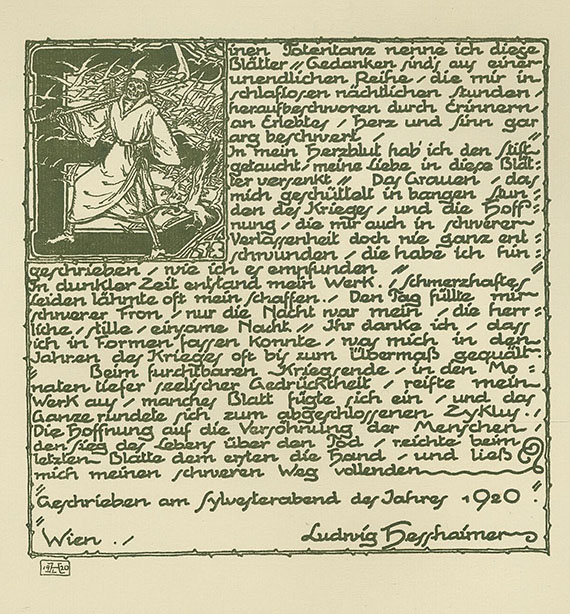 inen Totentanz nenne ich diese
Blätter // Gedanken sind's aus einer
unendlichen Reihe / die mir in
schlaflosen nächtlichen Stunden /
heraufbeschworen durch Erinnern
an Erlebtes / Herz und Sinn gar
arg beschwert / //
In mein Herzblut hab' ich den Stift
getaucht / meine Liebe in diese Blät-
ter versenkt // Das Grauen / das
mich geschüttelt in bangen Stun-
den des Krieges / und die Hoff-
nung / die mir auch in schwerer
Verlassenheit doch nie ganz ent-
schwunden / die habe ich hin-
geschrieben / wie ich es empfunden //
In dunkler Zeit entstand mein Werk ./ Schmerzhaftes
Leiden lähmte oft mein Schaffen ./ Den Tag füllte mir
schwerer Fron / nur die Nacht war mein / die herr-
liche / stille / einsame Nacht // Ihr danke ich / dass
ich in Formen fassen konnte / was mich in den
Jahren des Krieges oft bis zum Übermaß gequält
// Beim furchtbaren Kriegsende / in den Mo-
naten tiefer seelischer Gedrücktheit / reifte mein
Werk aus / manches Blatt fügte sich ein / und das
Ganze rundete sich zum abgeschlossenen Zyklus ./
Die Hoffnung auf die Versöhnung der Menschen /
den Sieg des Lebens über den Tod / reichte beim
letzten Blatte dem ersten die Hand / und ließ
mich meinen schweren Weg vollenden
// Geschrieben am Sylvesterabend des Jahres 1920
// Wien ./ Ludwig Hesshaimer